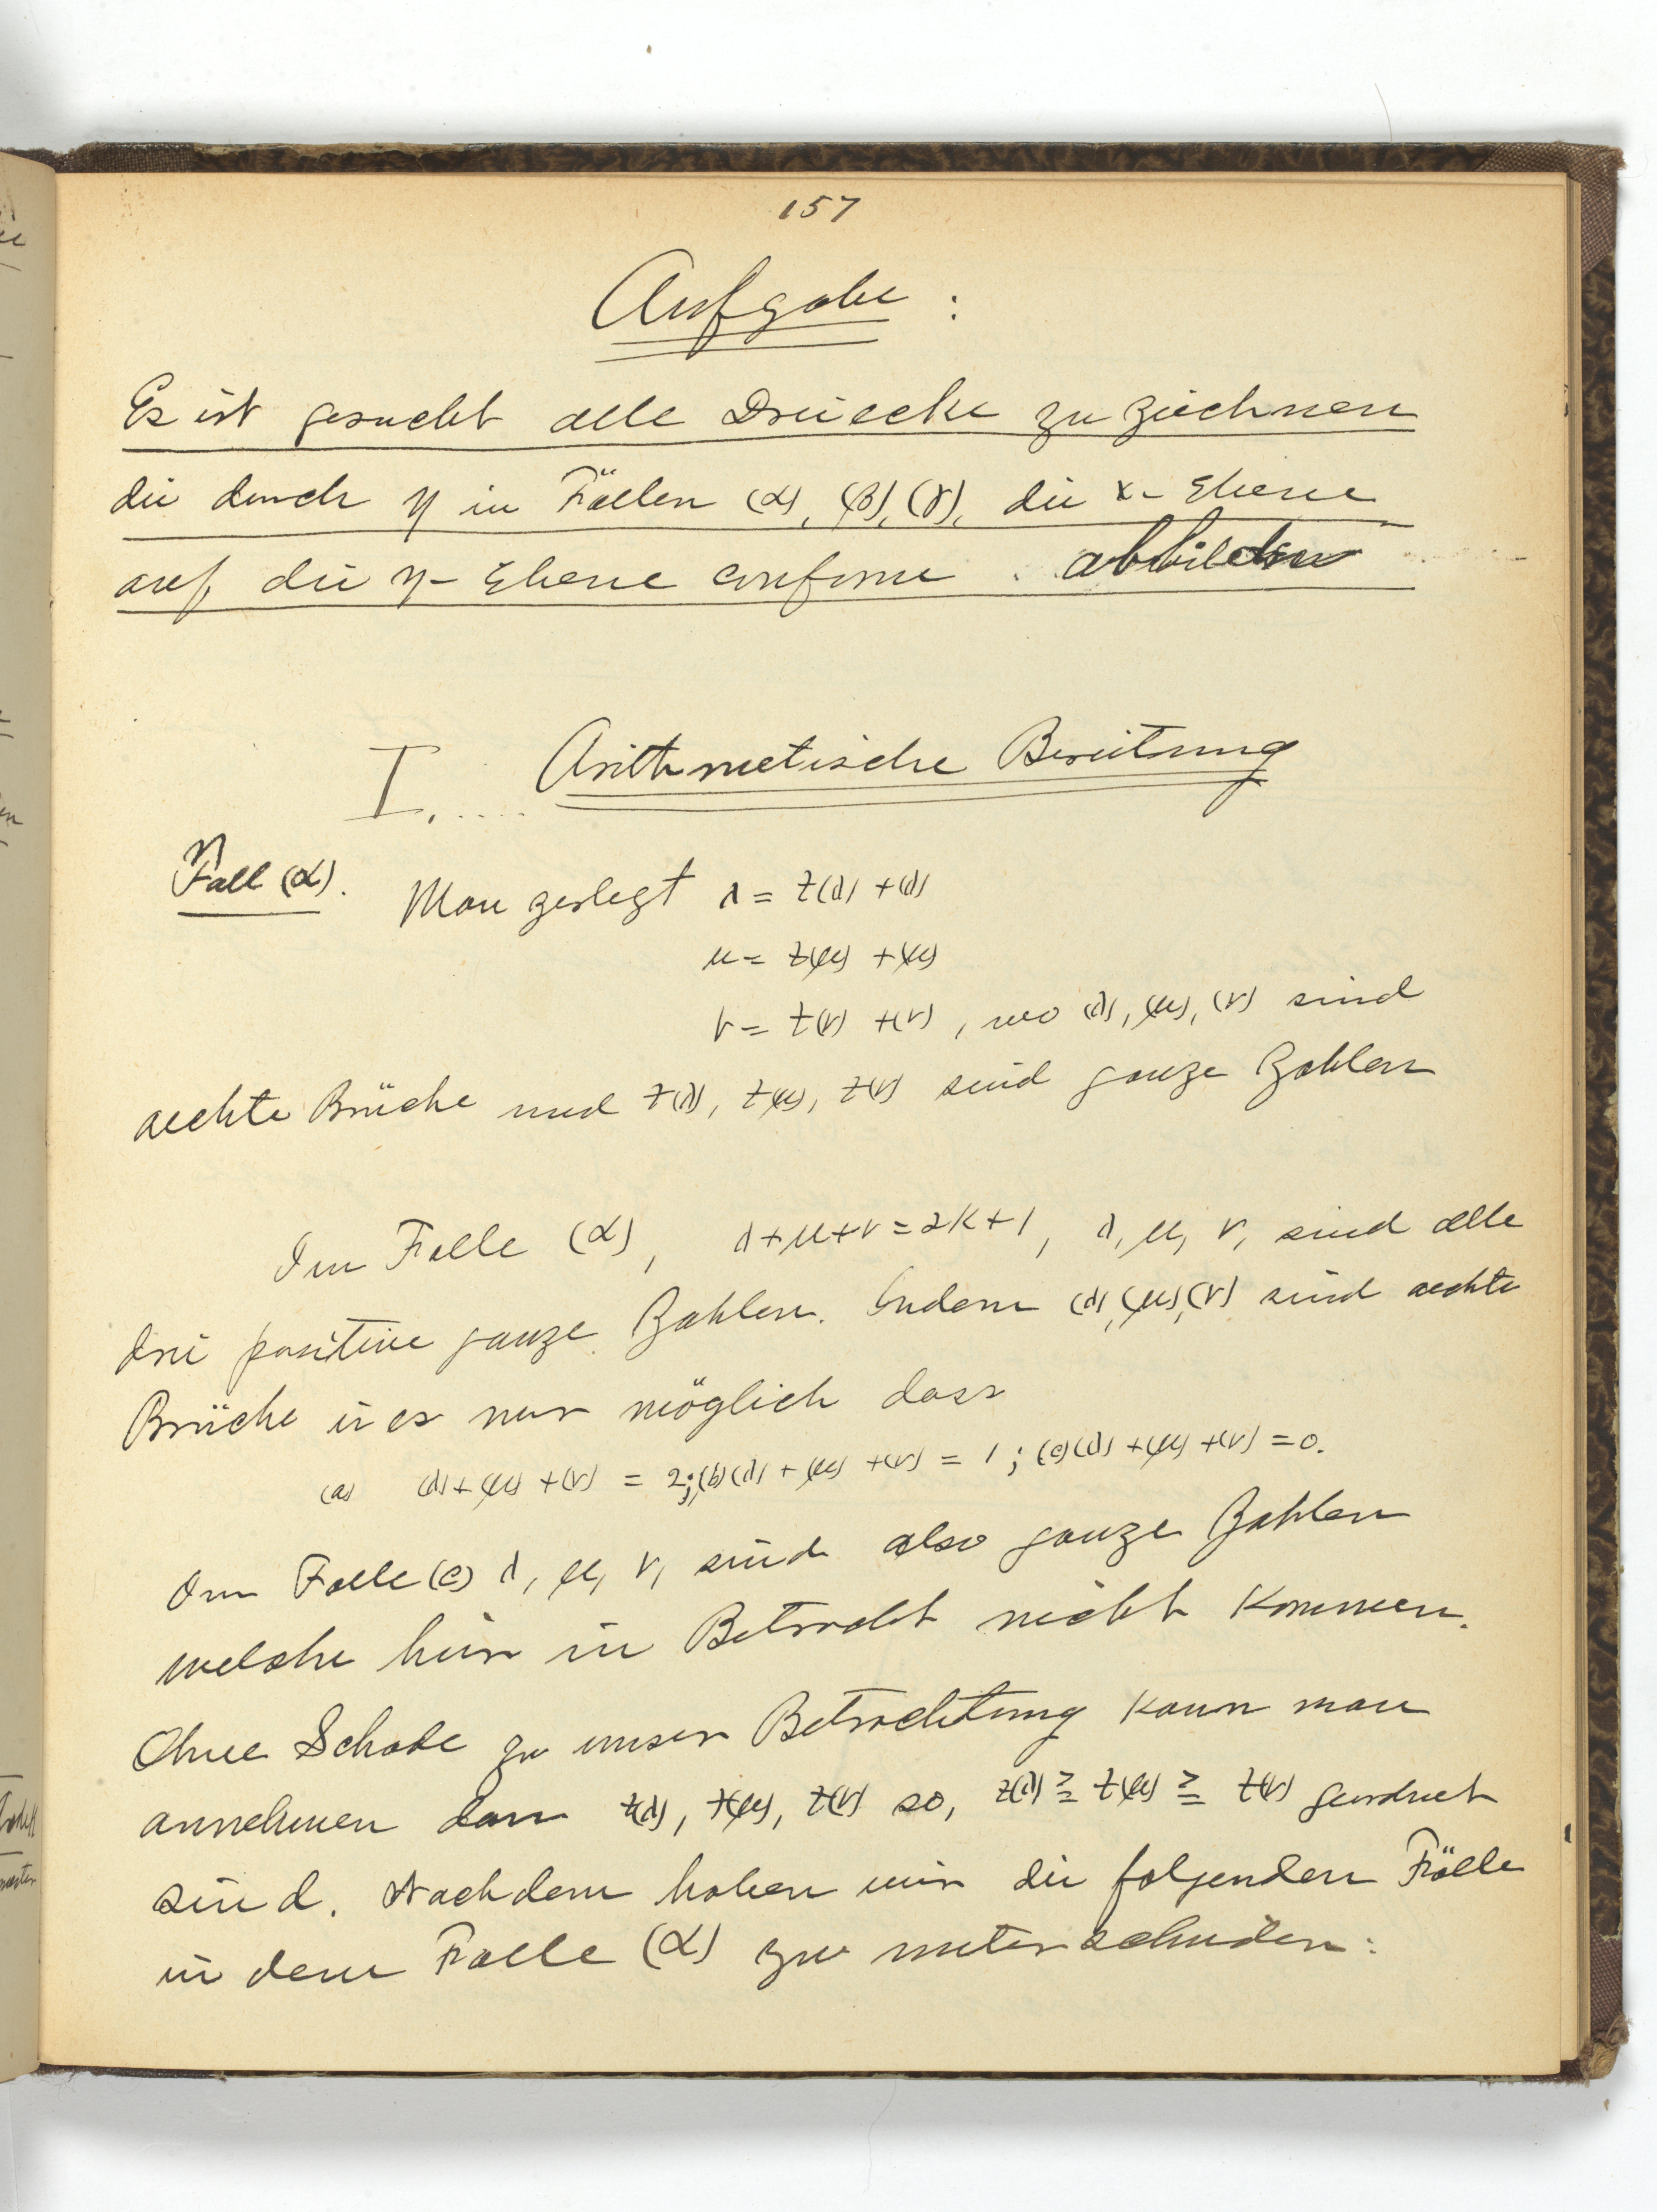 157
Aufgabe :
Es ist gesucht alle Dreiecke zu zeichnen
die durch η in Fällen (α), (β), (γ), die x- Ebene
auf die η- Ebene conforme abbilden
I. .... Arithmetische Bereitung
Fall (α). Man zerlegt λ = z(λ) + (λ)
μ = z(μ) + (μ)
ν = z(ν) + (ν) , wo (λ), (μ), (ν) sind
aechte Brüche und z(λ), z(μ), z(ν) sind ganze Zahlen
Im Falle (α), λ+μ+ν = 2k+1, λ, μ, ν, sind alle
drei positive ganze Zahlen. Indem (λ), (μ), (ν) sind aechte
Brüche is es nur möglich dass
(a) (λ) + (μ) + (ν) = 2; (b) (λ) + (μ) + (ν) = 1 ; (c) (λ) + (μ) + (ν) = 0.
Im Falle (c) λ, μ, ν, sind also ganze Zahlen
welche hier in Betracht nicht kommen.
Ohne Schade zu unser Betrachtung kann man
annehmen dass z(λ), z(μ), z(ν) so, z(λ) ≧ z(μ) ≧ z(ν) geordnet
sind. Nachdem haben wir die folgenden Fälle
in dem Falle (α) zu unterscheiden :